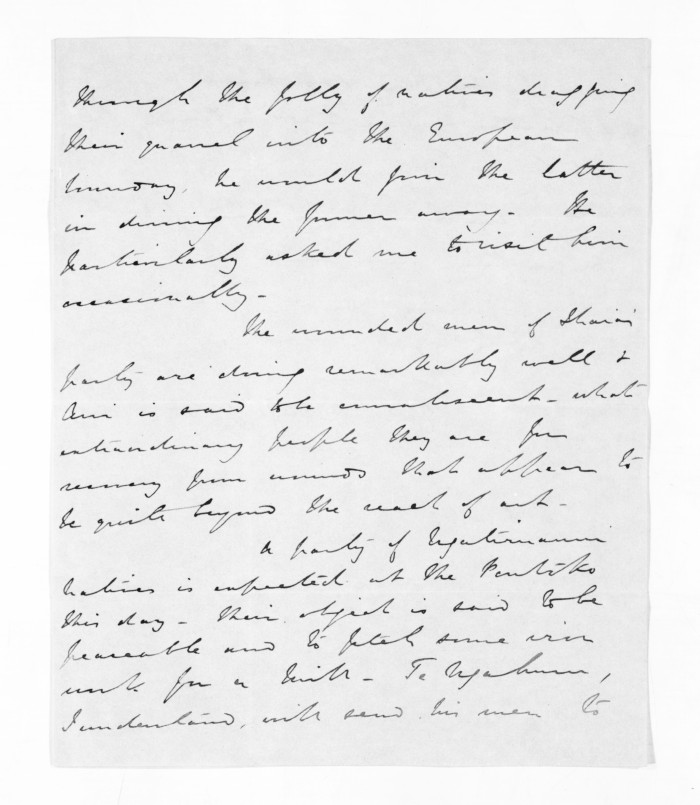 through the folly of natives dragging
their quarrel into the European
boundary, he would join the latter
in driving the former away - He
particularly asked me to visit him
occasionally -
The wounded men of Ihaia's
party are doing remarkably well &
is said to be convalescent - what
extraordinary people they are for
recovery from wounds that appear to
be quite beyond the reach of art -
A party of Ngatiruanui
natives is expected at the
this day - their object is said to be
peaceable and to fetch some iron
work for a Mill - Te Ngahuru,
I understand, will send his men to